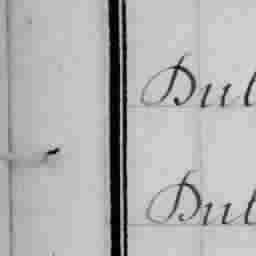 Dul
Dul